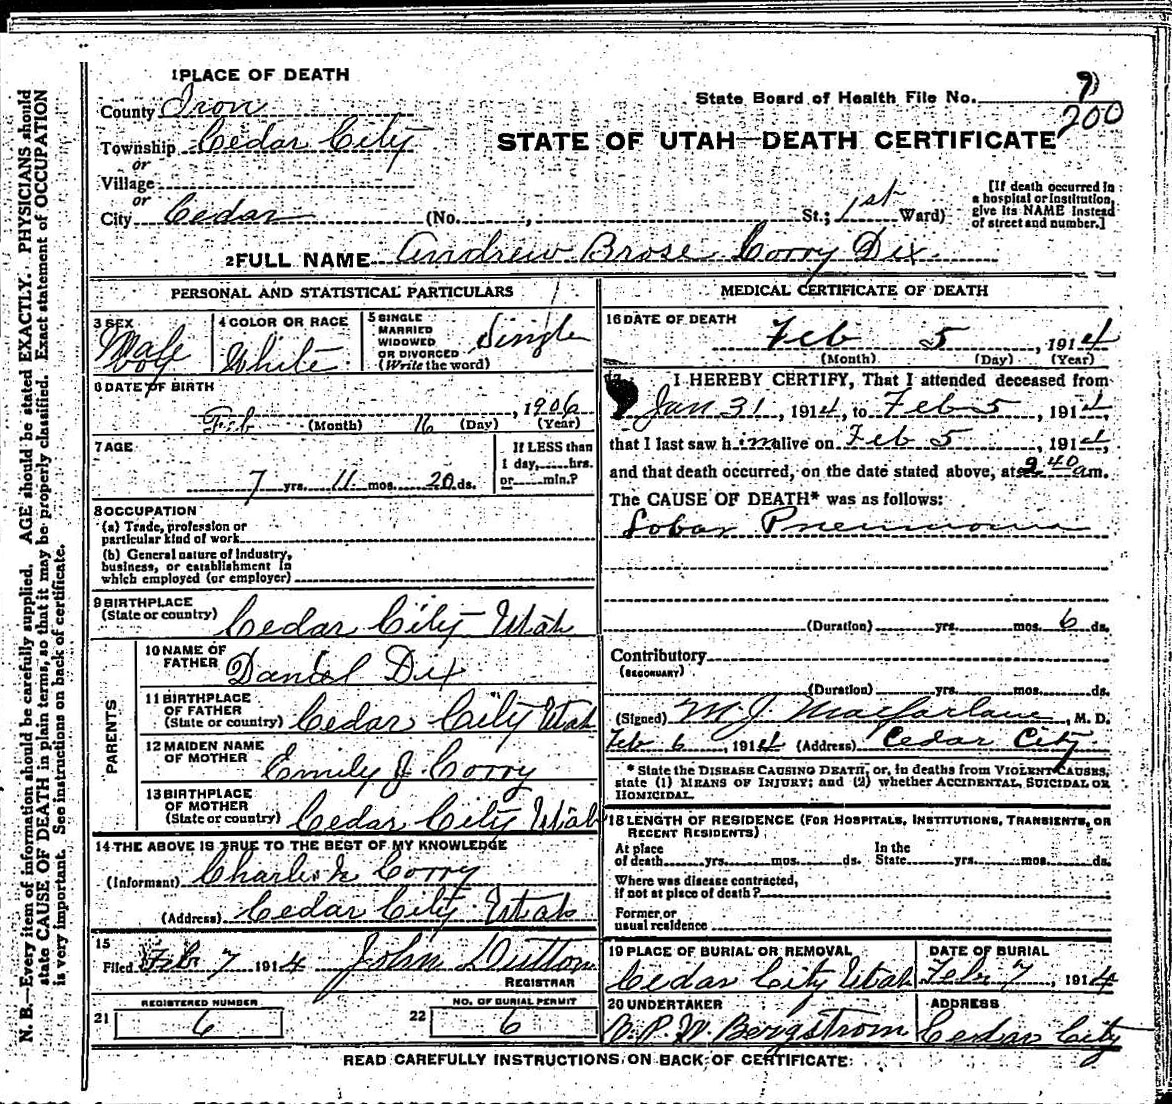 1 PLACE OF DEATH
County Iron
Township Cedar City
or
Village
or
City Cedar (No. , St.; 1st Ward)
State Board of Health File No. 9
200
STATE OF UTAH—DEATH CERTIFICATE
[If death occurred in
a hospital or institution,
give its NAME instead
of street and number.]
2 FULL NAME Andrew Brose Corry Dix
PERSONAL AND STATISTICAL PARTICULARS
3 SEX
Male
boy
4 COLOR OR RACE
White
5 SINGLE
MARRIED
WIDOWED
OR DIVORCED
(Write the word)
Single
6 DATE OF BIRTH
Feb (Month) 16 (Day) , 1906 (Year)
7 AGE
7 yrs. 11 mos. 20 ds.
If LESS than
1 day, hrs.
or min.?
8 OCCUPATION
(a) Trade, profession or
particular kind of work
(b) General nature of industry,
business, or establishment in
which employed (or employer)
9 BIRTHPLACE
(State or country) Cedar City Utah
PARENTS
10 NAME OF
FATHER Daniel Dix
11 BIRTHPLACE
OF FATHER
(State or country) Cedar City Utah
12 MAIDEN NAME
OF MOTHER Emily J Corry
13 BIRTHPLACE
OF MOTHER
(State or country) Cedar City Utah
14 THE ABOVE IS TRUE TO THE BEST OF MY KNOWLEDGE
(Informant) Corry
(Address) Cedar City Utah
15
Filed Feb 7 1914 John Dutton
REGISTRAR
REGISTERED NUMBER
21 6
NO. OF BURIAL PERMIT
22 6
MEDICAL CERTIFICATE OF DEATH
16 DATE OF DEATH
Feb 5 , 1914
(Month) (Day) (Year)
17 I HEREBY CERTIFY, That I attended deceased from
Jan 31 , 1914, to Feb 5 , 1914,
that I last saw h im alive on Feb 5 , 1914,
and that death occurred, on the date stated above, at 2 40 am.
The CAUSE OF DEATH* was as follows:
Lobar Pneumonia
(Duration) yrs. mos. 6 ds.
Contributory
(SECONDARY)
(Duration) yrs. mos. ds.
(Signed) M. J. Macfarlane , M. D.
Feb 6 , 1914 (Address) Cedar City
* State the DISEASE CAUSING DEATH, or, in deaths from VIOLENT CAUSES,
state (1) MEANS OF INJURY; and (2) whether ACCIDENTAL, SUICIDAL OR
HOMICIDAL.
18 LENGTH OF RESIDENCE (FOR HOSPITALS, INSTITUTIONS, TRANSIENTS, OR
RECENT RESIDENTS)
At place
of death yrs. mos. ds.
In the
State yrs. mos. ds.
Where was disease contracted,
if not at place of death?
Former or
usual residence
19 PLACE OF BURIAL OR REMOVAL
Cedar City Utah
DATE OF BURIAL
Feb 7 , 1914
20 UNDERTAKER
Bergstrom
ADDRESS
Cedar City
READ CAREFULLY INSTRUCTIONS ON BACK OF CERTIFICATE.
N. B.—Every item of information should be carefully supplied. AGE should be stated EXACTLY. PHYSICIANS should
state CAUSE OF DEATH in plain terms, so that it may be properly classified. Exact statement of OCCUPATION
is very important. See instructions on back of certificate.